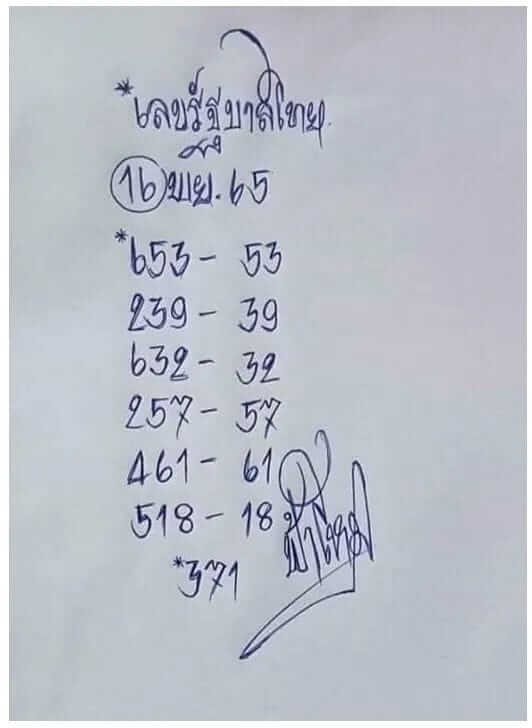 *เลขรัฐบาลไทย.
16 พ.ย. 65
*653 - 53
239 - 39
632 - 32
257 - 57
461 - 61
518 - 18
*371
ฟ้าใหม่